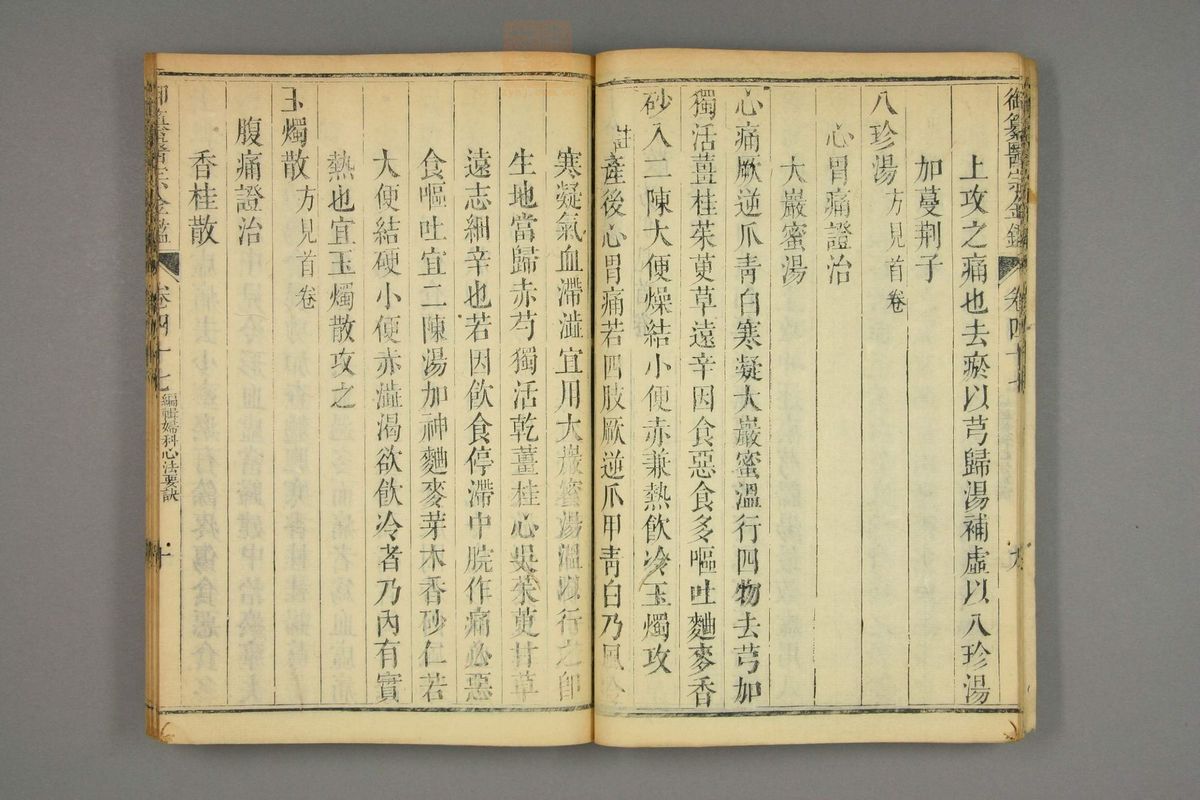 御纂醫宗金鑑 卷四十七 九
上攻之痛也去瘀以芎歸湯補虛以八珍湯
加蔓荆子
八珍湯方見首卷
心胃痛證治
大巖蜜湯
心痛厥逆爪青白寒凝大巖蜜溫行四物去芎加
獨活薑桂茱萸草遠辛因食惡食多嘔吐麯麥香
砂入二陳大便燥結小便赤兼熱飲冷玉燭攻
註產後心胃痛若四肢厥逆爪甲青白乃風冷
寒凝氣血滯澁宜用大巖蜜湯溫以行之卽
生地當歸赤芍獨活乾薑桂心吳茱萸甘草
遠志細辛也若因飲食停滯中脘作痛必惡
食嘔吐宜二陳湯加神麯麥芽木香砂仁若
大便結硬小便赤澁渴欲飲冷者乃內有實
熱也宜玉燭散攻之
玉燭散方見首卷
腹痛證治
香桂散
御纂醫宗金鑑 卷四十七編輯婦科心法要訣 十